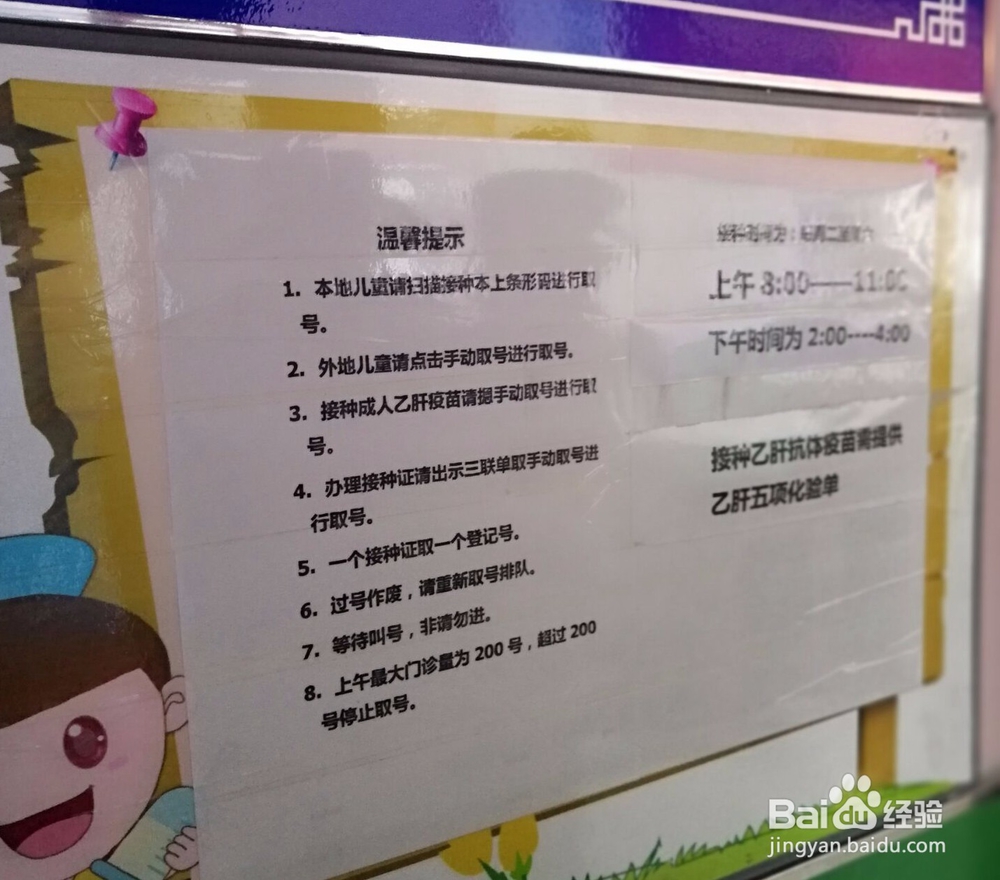 温馨提示
1. 本地儿童请扫描接种本上条形码进行取
号。
2. 外地儿童请点击手动取号进行取号。
3. 接种成人乙肝疫苗请摁手动取号进行取
号。
4. 办理接种证请出示三联单取手动取号进
行取号。
5. 一个接种证取一个登记号。
6. 过号作废，请重新取号排队。
7. 等待叫号，非请勿进。
8. 上午最大门诊量为 200 号，超过 200
号停止取号。
接种时间为：
上午 8:00——11:00
下午时间为 2:00----4:00
接种乙肝抗体疫苗需提供
乙肝五项化验单
Baidu 经验
jingyan.baidu.com